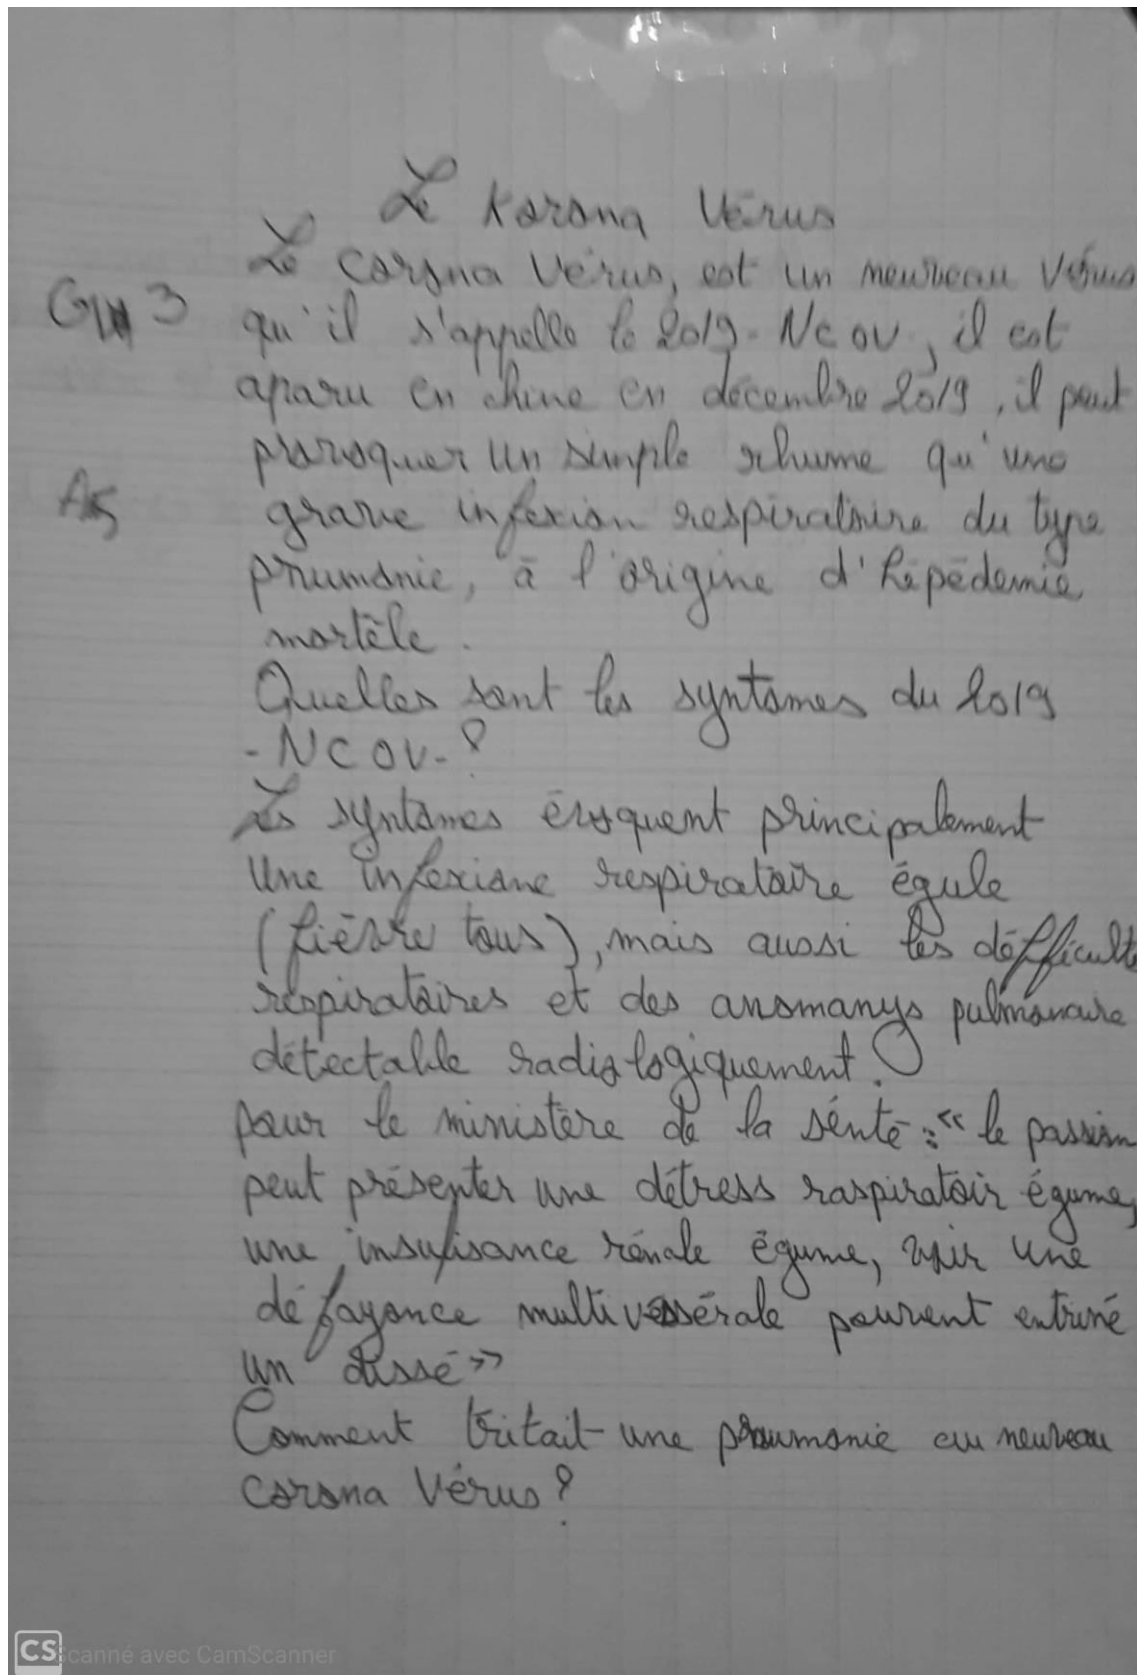 Le Korona Vérus
Le corona Vérus, est un neuveau Vérus
G 3
qu'il s'appelle le 2019-NCOV, il est
aparu en chine en décembre 2019, il peut
proroquer un simple rhume qu'une
A5
grave infexion respiratoire du type
pnumonie, à l'origine d'hépédemie
mortèle.
Quelles sont les syntomes du 2019
-NCOV-?
Les syntomes évoquent principalement
Une infexione respiratoire égule
(fièvre tous), mais aussi les défficulté
respiratoires et des anomanys pulmonaire
détectable radiologiquement.
pour le ministère de la sénté : « le passion
peut présenter une détress raspiratoir égume,
une insufisance rénale égume, voir une
défayance multivessérale pouvent entriné
un dissé »
Comment tritait-une pnumonie au neuveau
corona Vérus ?
CS Scanné avec CamScanner